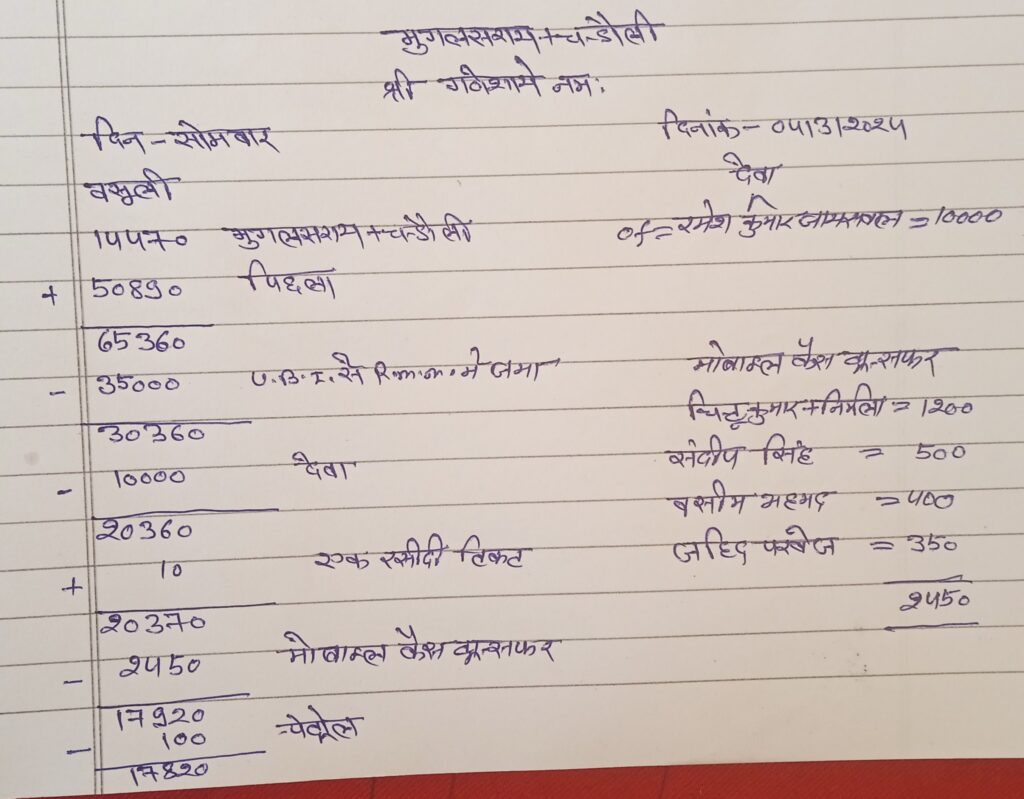 मुगलसराय+चन्डौली
श्री गणेशाये नमः
दिन - सोमबार
दिनांक - 04/3/2024
वसूली
देवा
14470 मुगलसराय+चन्डौली
of = रमेश कुमार जायसवाल = 10000
+ 50890 पिछला
65360
- 35000 U.B.I. से R.m.m. मे जमा
मोबाइल कैस ट्रान्सफर
30360
चिन्टू कुमार+निर्मला = 1200
- 10000 देवा
संदीप सिंह = 500
20360
वसीम अहमद = 400
+ 10 एक रसीदी टिकट
जहिद परवेज = 350
2450
20370
- 2450 मोबाइल कैस ट्रान्सफर
17920
- 100 पेट्रोल
17820